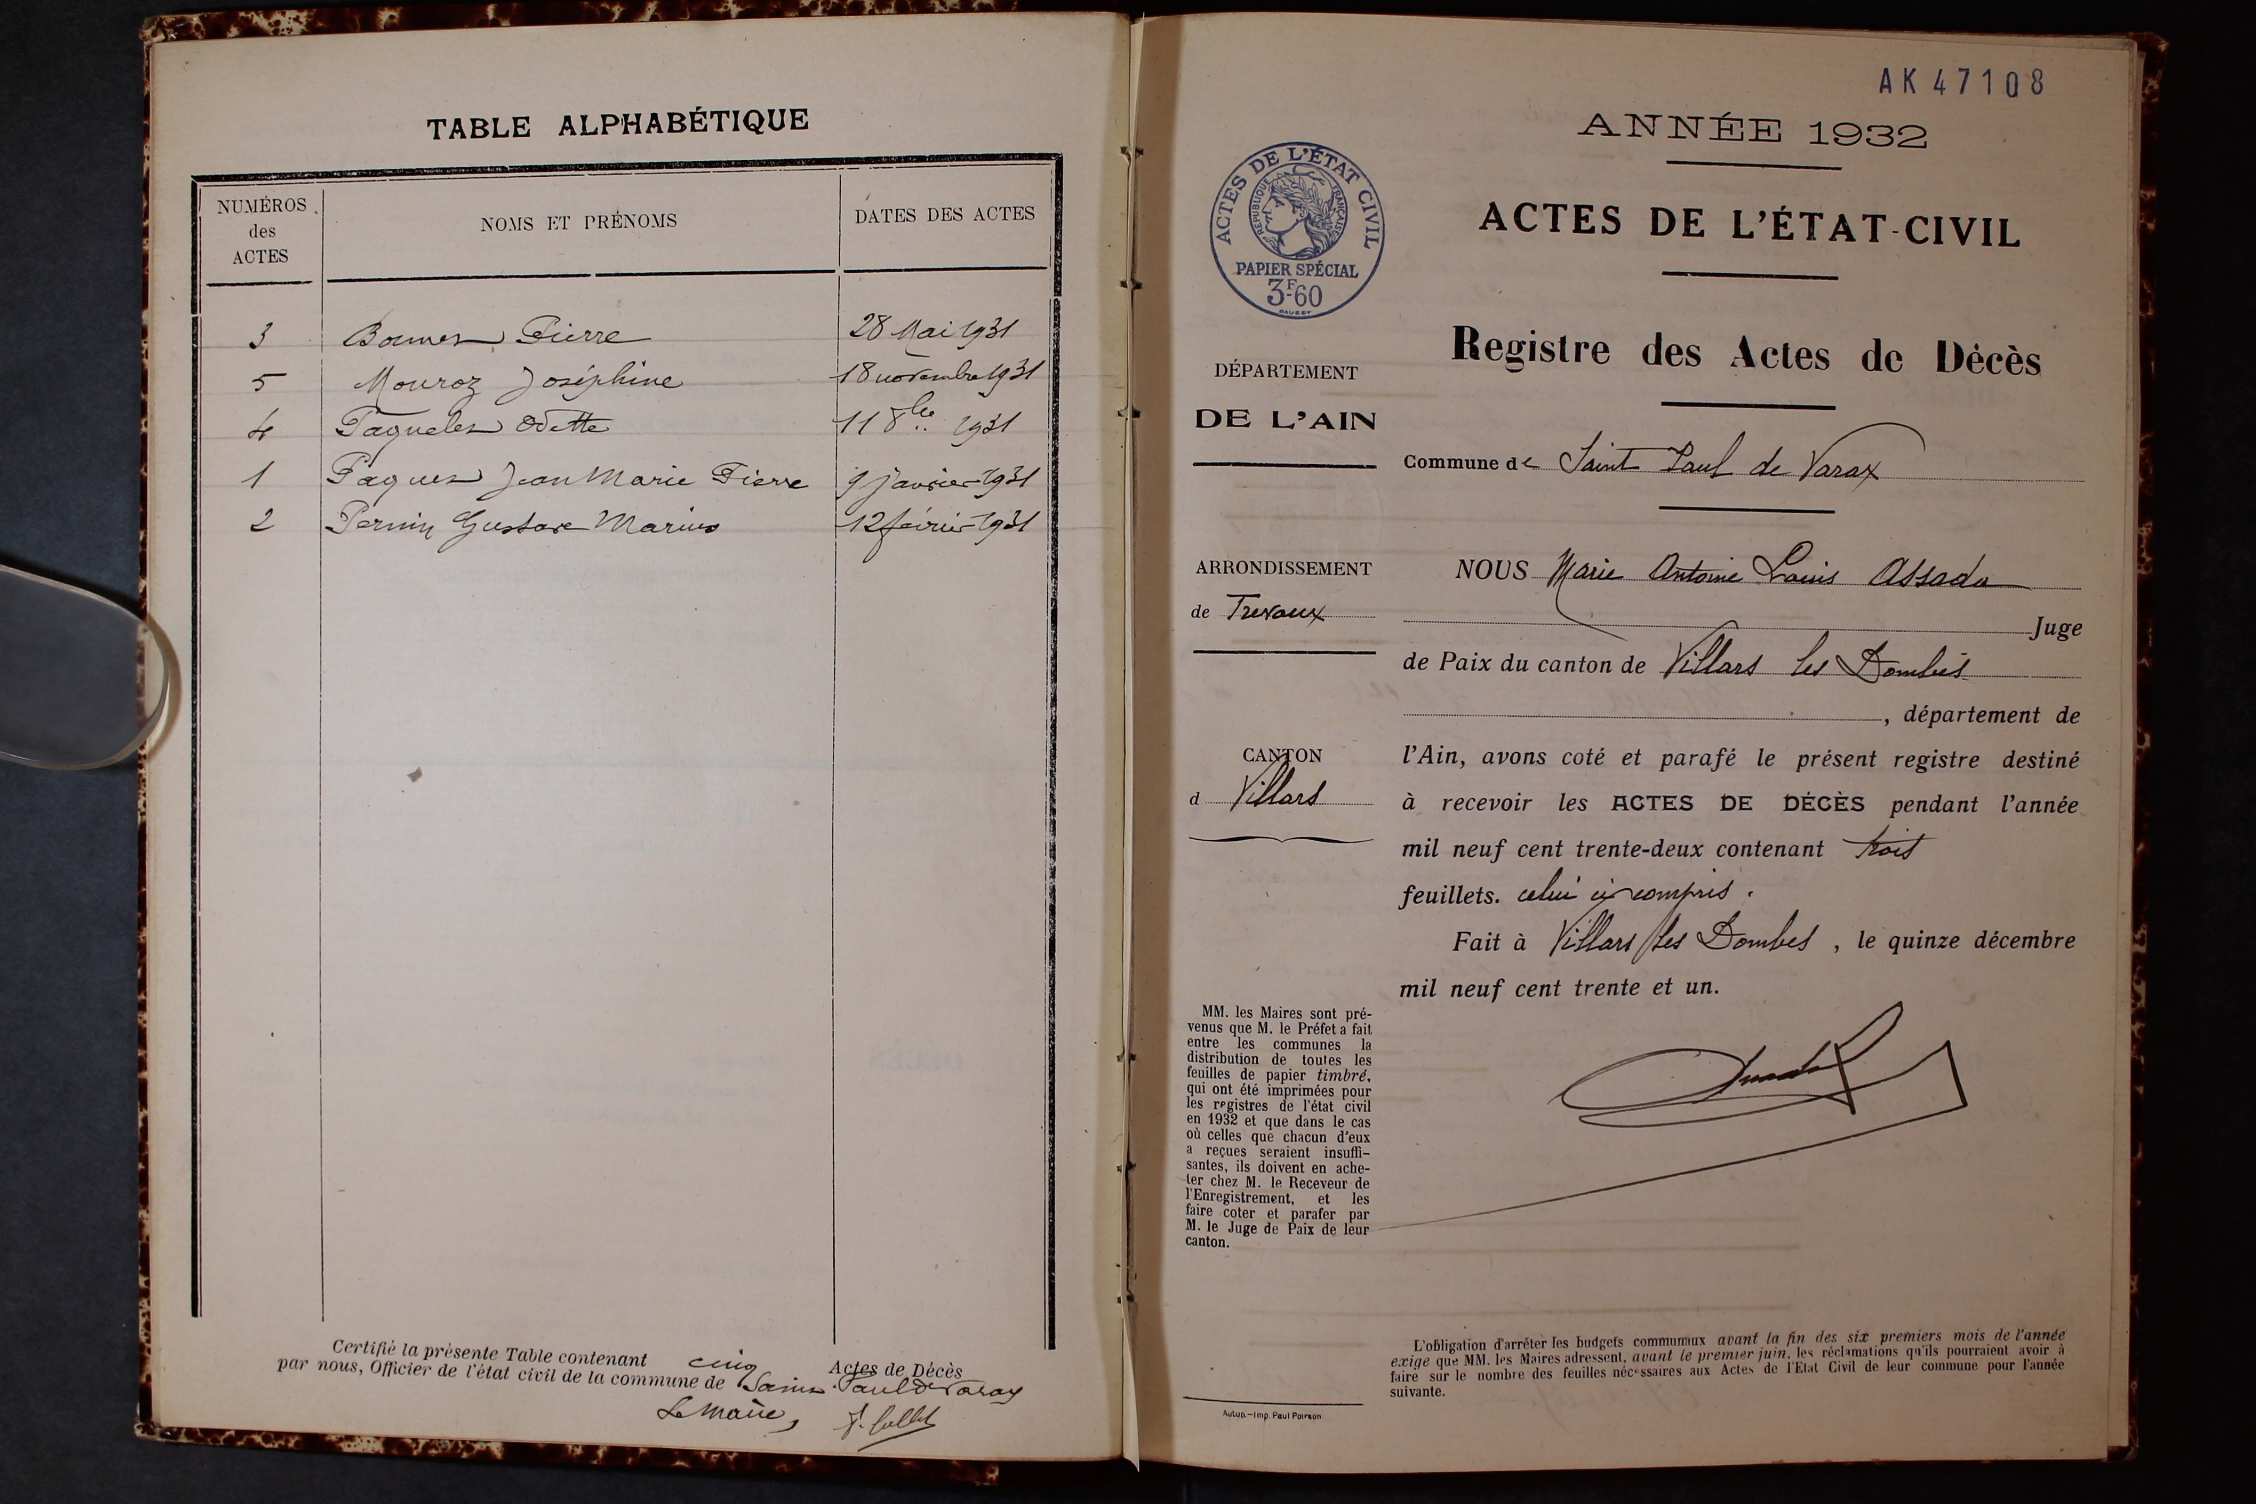 TABLE ALPHABÉTIQUE
NUMÉROS
des
ACTES
NOMS ET PRÉNOMS
DATES DES ACTES
3 Pierre 28 Mai 1931
5 Mouroz Joséphine 18 novembre 1931
4 Odette 11 8bre 1931
1 Paques Jean Marie Pierre 9 janvier 1931
2 Pernin Gustave Marius 12 février 1931
Certifié la présente Table contenant cinq Actes de Décès
par nous, Officier de l'état civil de la commune de Saint Paul de Varax
Le Maire,
AK 47108
ANNÉE 1932
ACTES DE L'ÉTAT CIVIL
RÉPUBLIQUE FRANÇAISE
PAPIER SPÉCIAL
3F60
ACTES DE L'ÉTAT-CIVIL
Registre des Actes de Décès
DÉPARTEMENT
DE L'AIN
Commune de Saint Paul de Varax
ARRONDISSEMENT
de Trevoux
CANTON
d Villars
NOUS Marie Antoine Louis Assada
Juge
de Paix du canton de Villars les Dombes
, département de
l'Ain, avons coté et parafé le présent registre destiné
à recevoir les ACTES DE DÉCÈS pendant l'année
mil neuf cent trente-deux contenant trois
feuillets. celui ci compris.
Fait à Villars les Dombes, le quinze décembre
mil neuf cent trente et un.
MM. les Maires sont pré-
venus que M. le Préfet a fait
entre les communes la
distribution de toutes les
feuilles de papier timbré,
qui ont été imprimées pour
les registres de l'état civil
en 1932 et que dans le cas
où celles que chacun d'eux
a reçues seraient insuffi-
santes, ils doivent en ache-
ter chez M. le Receveur de
l'Enregistrement, et les
faire coter et parafer par
M. le Juge de Paix de leur
canton.
Autun.—Imp. Paul Poirson
L'obligation d'arrêter les budgets communaux avant la fin des six premiers mois de l'année
exige que MM. les Maires adressent, avant le premier juin, les réclamations qu'ils pourraient avoir à
faire sur le nombre des feuilles nécessaires aux Actes de l'Etat Civil de leur commune pour l'année
suivante.